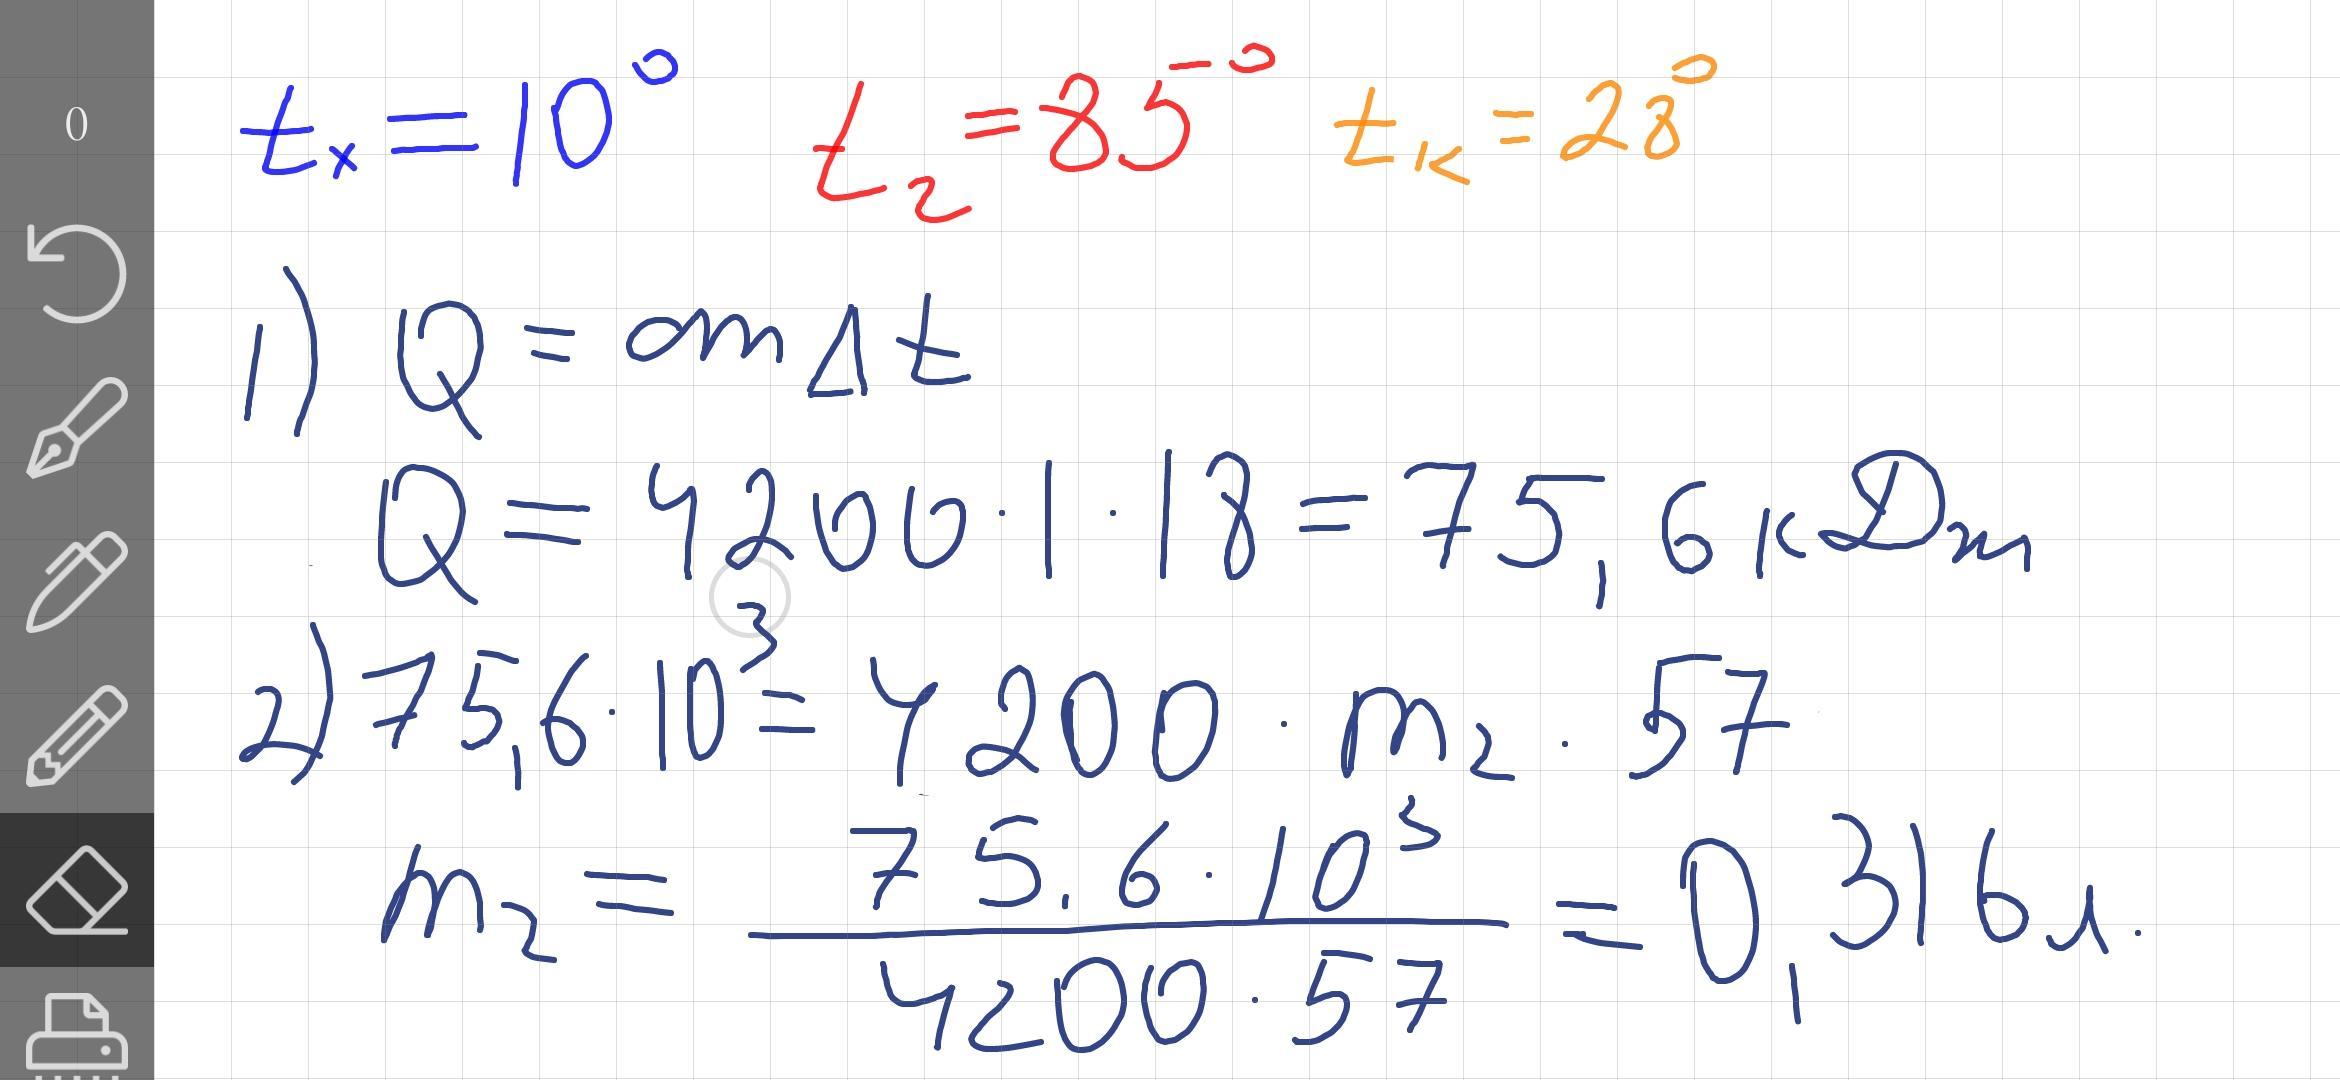 0
tₓ = 10° t₂ = 85° tк = 28°
1) Q = cmΔt
Q = 4200 · 1 · 18 = 75,6 кДж
2) 75,6 · 10³ = 4200 · m₂ · 57
m₂ = 75.6 · 10³ / 4200 · 57 = 0,316 л.